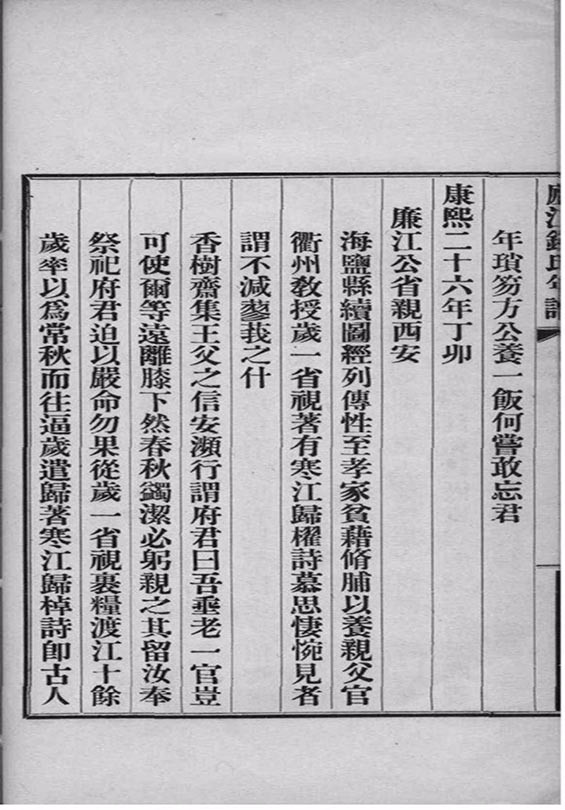 廬江錢氏年譜
年瑣笏方公養一飯何嘗敢忘君
康熙二十六年丁卯
廉江公省親西安
海鹽縣續圖經列傳性至孝家貧藉脩脯以養親父官
衢州敎授歲一省視著有寒江歸櫂詩慕思悽惋見者
謂不減蓼莪之什
香樹齋集王父之信安瀕行謂府君曰吾垂老一官豈
可使爾等遠離膝下然春秋蠲潔必躬親之其留汝奉
祭祀府君迫以嚴命勿果從歲一省視裹糧渡江十餘
歲率以爲常秋而往逼歲遣歸著寒江歸棹詩卽古人